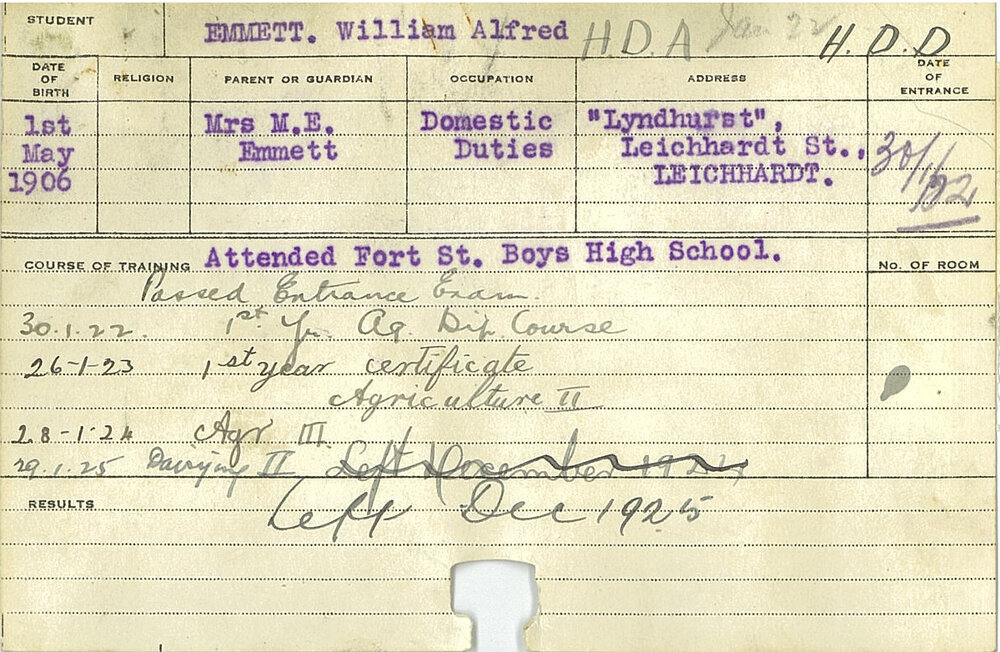 STUDENT EMMETT. William Alfred H.D.A Jan 22 H.D.D
DATE OF BIRTH RELIGION PARENT OR GUARDIAN OCCUPATION ADDRESS DATE OF ENTRANCE
1st Mrs M.E. Domestic "Lyndhurst",
May Emmett Duties Leichhardt St., 30/1/22
1906 LEICHHARDT.
COURSE OF TRAINING Attended Fort St. Boys High School. No. OF ROOM
Passed Entrance Exam.
30.1.22. 1st Yr. Ag. Dip. Course
26-1-23 1st year certificate
Agriculture II
28-1-24 Agr III
29.1.25 Dairying II Left December 1924
RESULTS Left Dec 1925